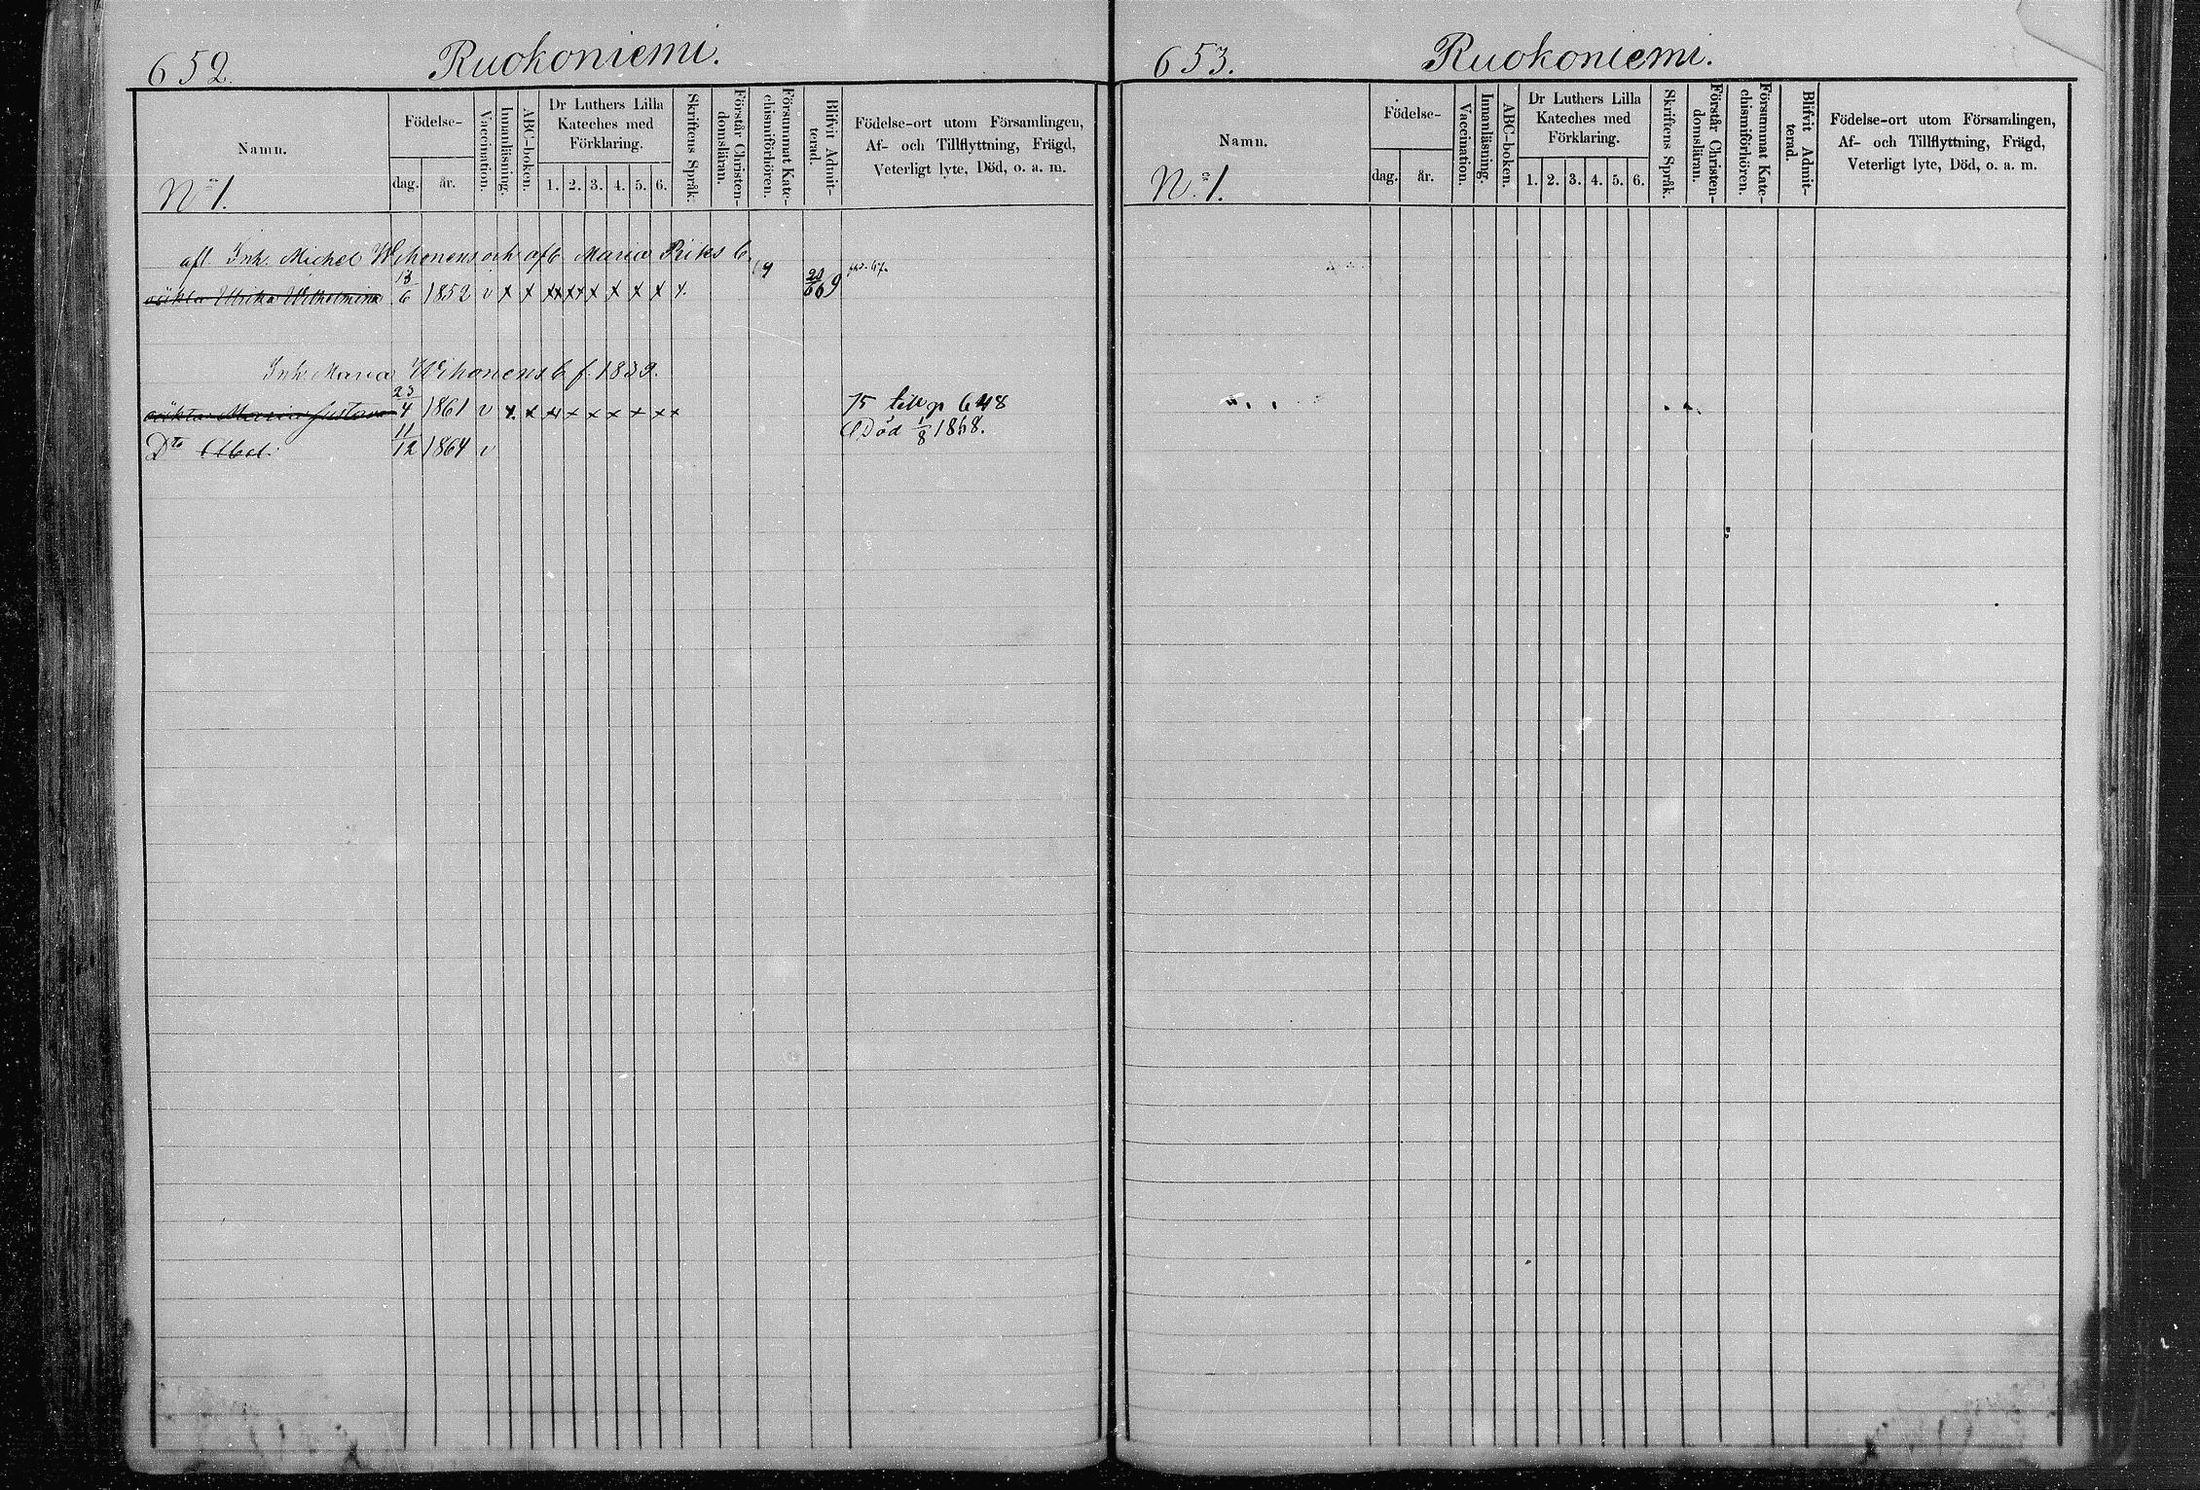 652.
Ruokoniemi.
Namn.
Födelse-
dag.
år.
Vaccination.
Innanläsning.
ABC-boken.
Dr Luthers Lilla
Kateches med
Förklaring.
1. 2. 3. 4. 5. 6.
Skriftens Språk.
Förstår Christen-
domsläran.
Försummat Kate-
chismiförhören.
Blifvit Admit-
terad.
Födelse-ort utom Församlingen,
Af- och Tillflyttning, Frägd,
Veterligt lyte, Död, o. a. m.
No 1.
afl Inh. Michel Wihonens och afl. Maria Riks b.
oäkta Ulrika Wilhelmina 13/6 1852 v x x xx xx x x x x x. 69
Inh. Maria Wihonens b f. 1839.
oäkta Maria Gustava 23/4 1861 v x x x x x x x x x 75 till p 648
Dto Abel. 11/12 1864 v Död 1/8 1868.
653.
Ruokoniemi.
Namn.
Födelse-
dag.
år.
Vaccination.
Innanläsning.
ABC-boken.
Dr Luthers Lilla
Kateches med
Förklaring.
1. 2. 3. 4. 5. 6.
Skriftens Språk.
Förstår Christen-
domsläran.
Försummat Kate-
chismiförhören.
Blifvit Admit-
terad.
Födelse-ort utom Församlingen,
Af- och Tillflyttning, Frägd,
Veterligt lyte, Död, o. a. m.
No 1.